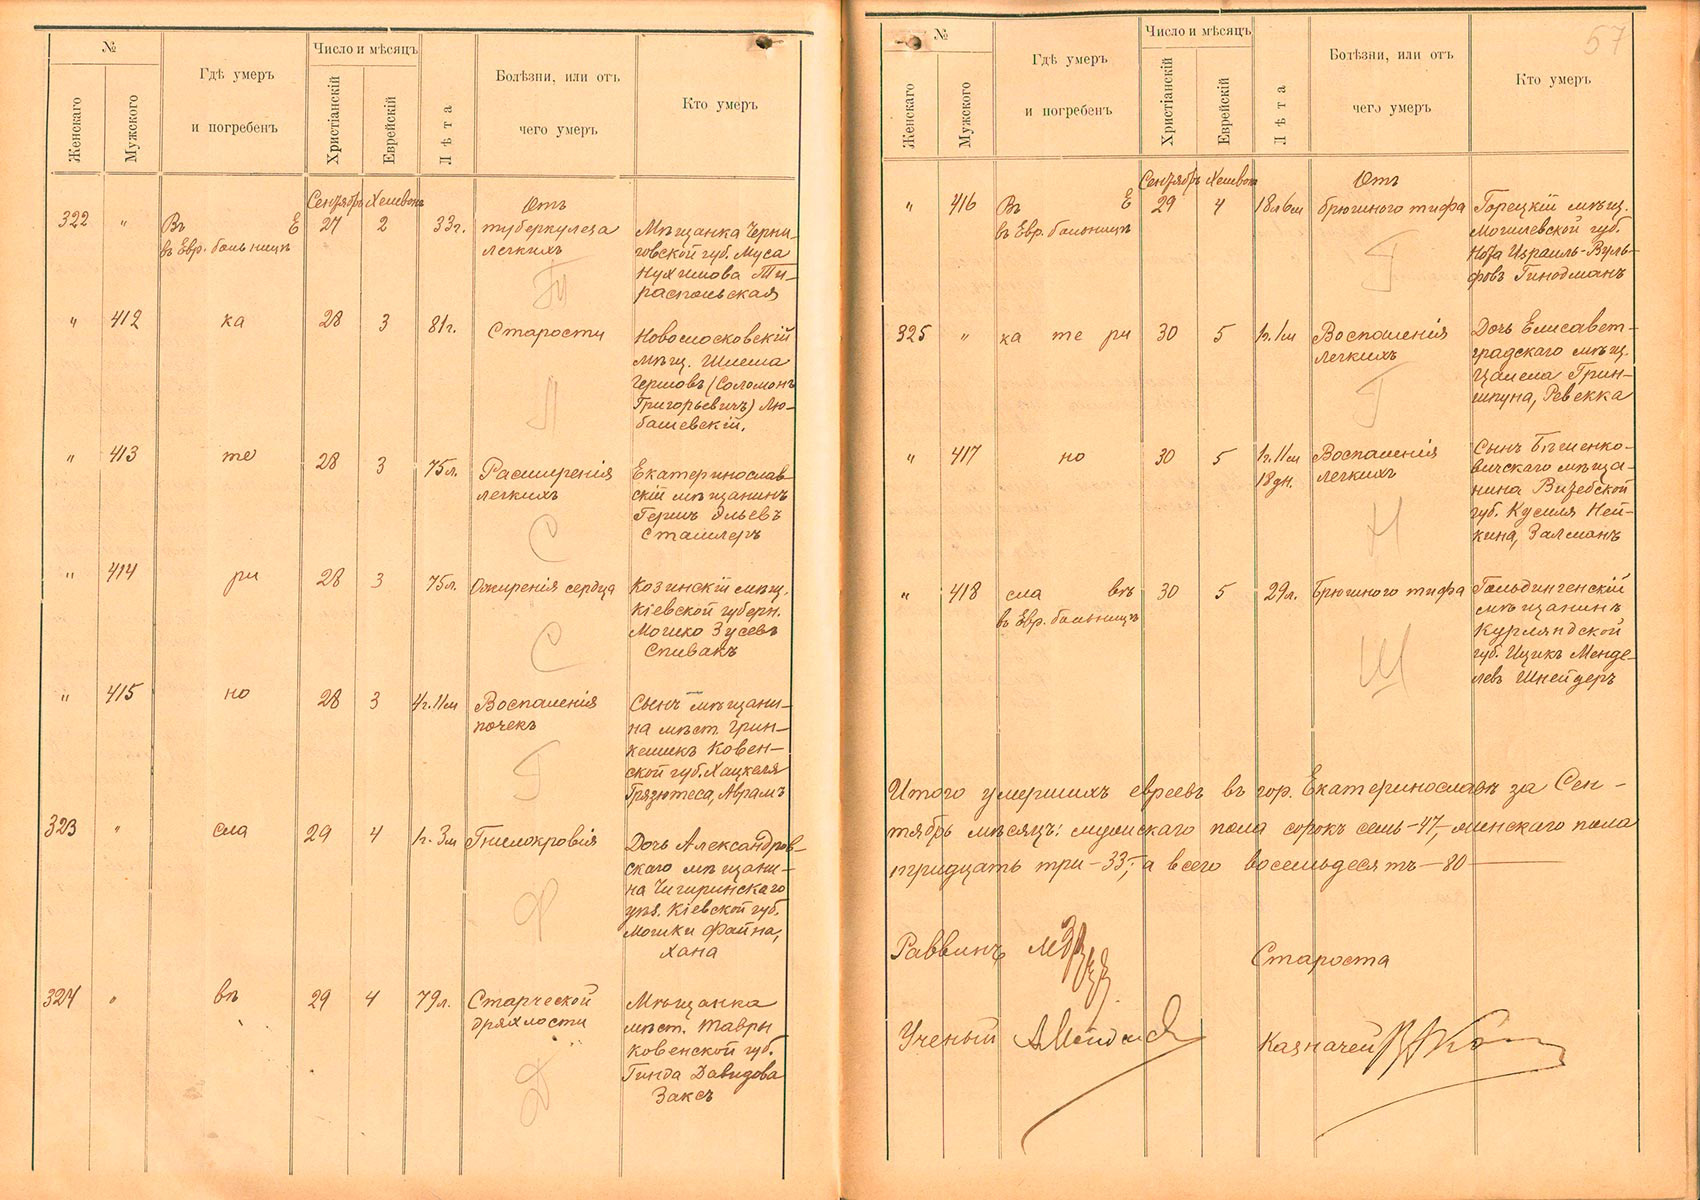 №
Число и мѣсяцъ
Гдѣ умеръ
и погребенъ
Болѣзни, или отъ
чего умеръ
Кто умеръ
Женскаго
Мужскаго
Христіанскій
Еврейскій
Лѣта
Сентябрь Хешвонъ
Отъ
322 " Въ Е 27 2 33г. туберкулеза Мѣщанка Черни-
въ Евр. больницѣ легкихъ говской губ. Муса
Нухимова Ти-
распольская
" 412 ка 28 3 81г. Старости Новомосковскій
мѣщ. Шлема
Гершовъ (Соломонъ
Григорьевичъ) Лю-
башевскій.
" 413 те 28 3 75л. Расширенія Екатеринослав-
легкихъ скій мѣщанинъ
Гершъ Эльевъ
Сташлеръ
" 414 ри 28 3 75л. Ожиренія сердца Козинскій мѣщ.
Кіевской губерн.
Мошко Зусевъ
Спивакъ
" 415 но 28 3 4г.11м Воспаленія Сынъ мѣщани-
почекъ на мѣст. Грин-
кешекъ Ковен-
ской губ. Хацкеля
Грязютеса, Аврамъ
323 " сла 29 4 1г. 3м Гнилокровія Дочь Александров-
скаго мѣщани-
на Чигиринскаго
уѣз. Кіевской губ.
Мошки Файна,
Хана
324 " вѣ 29 4 79л. Старческой Мѣщанка
дряхлости мѣст. Тавры
Ковенской губ.
Гинда Давидова
Заксъ
57
№
Число и мѣсяцъ
Гдѣ умеръ
и погребенъ
Болѣзни, или отъ
чего умеръ
Кто умеръ
Женскаго
Мужского
Христіанскій
Еврейскій
Лѣта
Сентябрь Хешвонъ
Отъ
" 416 Въ Е 29 4 18л6м брюшного тифа Горецкій мѣщ.
въ Евр. больницѣ Могилевской губ.
Нота Израиль-Вуль-
фовъ Гинодманъ
325 " ка те ри 30 5 1г.1м Воспаленія Дочь Елисавет-
легкихъ градскаго мѣщ.
Цалела Грин-
шпуна, Ревекка
" 417 но 30 5 1г.11м Воспаленія Сынъ Бѣшенко-
18дн. легкихъ вичскаго мѣща-
нина Витебской
губ. Кусиля Ней-
кина, Залманъ
" 418 сла вѣ 30 5 29л. Брюшного тифа Гольдингенскій
въ Евр. больницѣ мѣщанинъ
Курляндской
губ. Ицикъ Менде-
левъ Шнейдеръ
Итого умершихъ евреевъ въ гор. Екатеринославѣ за Сен-
тябрь мѣсяцъ: мужскаго пола сорокъ семь-47,-женскаго пола
тридцать три-33,-а всего восемьдесятъ-80
Раввинъ Староста
Ученый Казначей